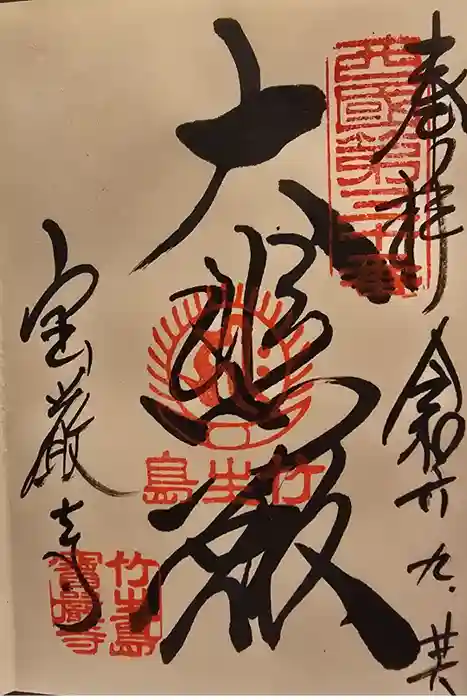 奉拝
西國第三十番
令和六 九.廿六
大悲殿
竹生島
宝厳寺
竹生島
寶嚴寺